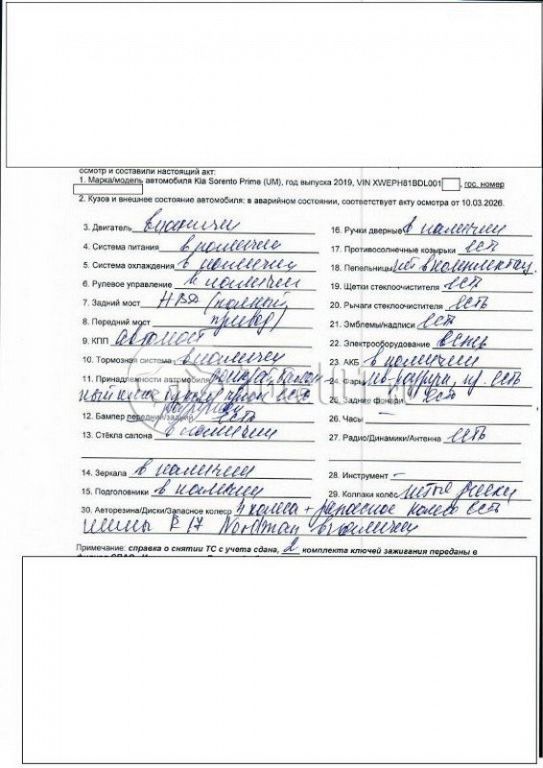 осмотр и составили настоящий акт:
1. Марка/модель автомобиля Kia Sorento Prime (UM), год выпуска 2019, VIN XWEPH81BDL001 , гос. номер
2. Кузов и внешнее состояние автомобиля: в аварийном состоянии, соответствует акту осмотра от 10.03.2026.
3. Двигатель в наличии
4. Система питания в наличии
5. Система охлаждения в наличии
6. Рулевое управление в наличии
7. Задний мост (полный
8. Передний мост привод)
9. КПП автомат
10. Тормозная система в наличии
11. Принадлежности автомобиля
есть
12. Бампер передний/задний есть
13. Стёкла салона в наличии
14. Зеркала в наличии
15. Подголовники в наличии
16. Ручки дверные в наличии
17. Противосолнечные козырьки есть
18. Пепельницы нет в комплектац.
19. Щетки стеклоочистителя есть
20. Рычаги стеклоочистителя есть
21. Эмблемы/надписи есть
22. Электрооборудование есть
23. АКБ в наличии
24. Фары есть
25. Задние фонари есть
26. Часы –
27. Радио/Динамики/Антенна есть
28. Инструмент –
29. Колпаки колёс литые диски
30. Авторезина/Диски/Запасное колесо 4 колеса + запасное колесо есть
шины R 17 Nordman в наличии
Примечание: справка о снятии ТС с учета сдана, 2 комплекта ключей зажигания переданы в